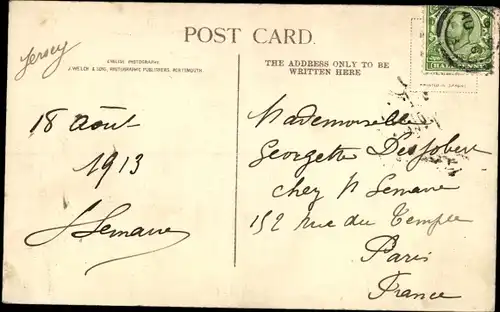 Jersey
POST CARD.
ENGLISH PHOTOGRAPHY.
J. WELCH & SONS, PHOTOGRAPHIC PUBLISHERS, PORTSMOUTH.
THE ADDRESS ONLY TO BE
WRITTEN HERE
HALFPENNY
18 Août
1913
Mademoiselle
Georgette
chez
152 Rue du Temple
Paris
France